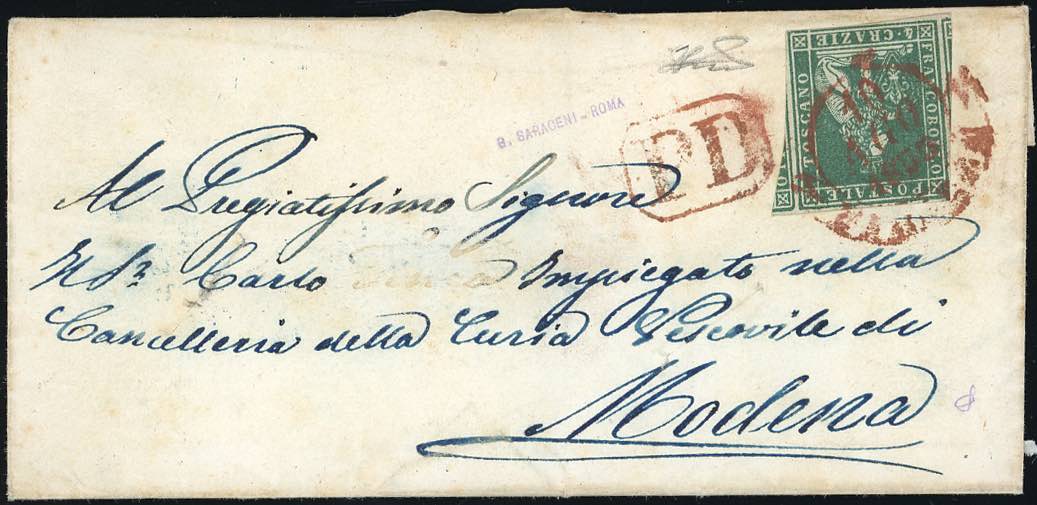 FRANCOBOLLO
POSTALE
TOSCANO
4 CRAZIE
PD
B. SARACENI - ROMA
Al Pregiatissimo Signore
Il Sr. Carlo Impiegato nella
Cancelleria della Curia Vescovile di
Modena